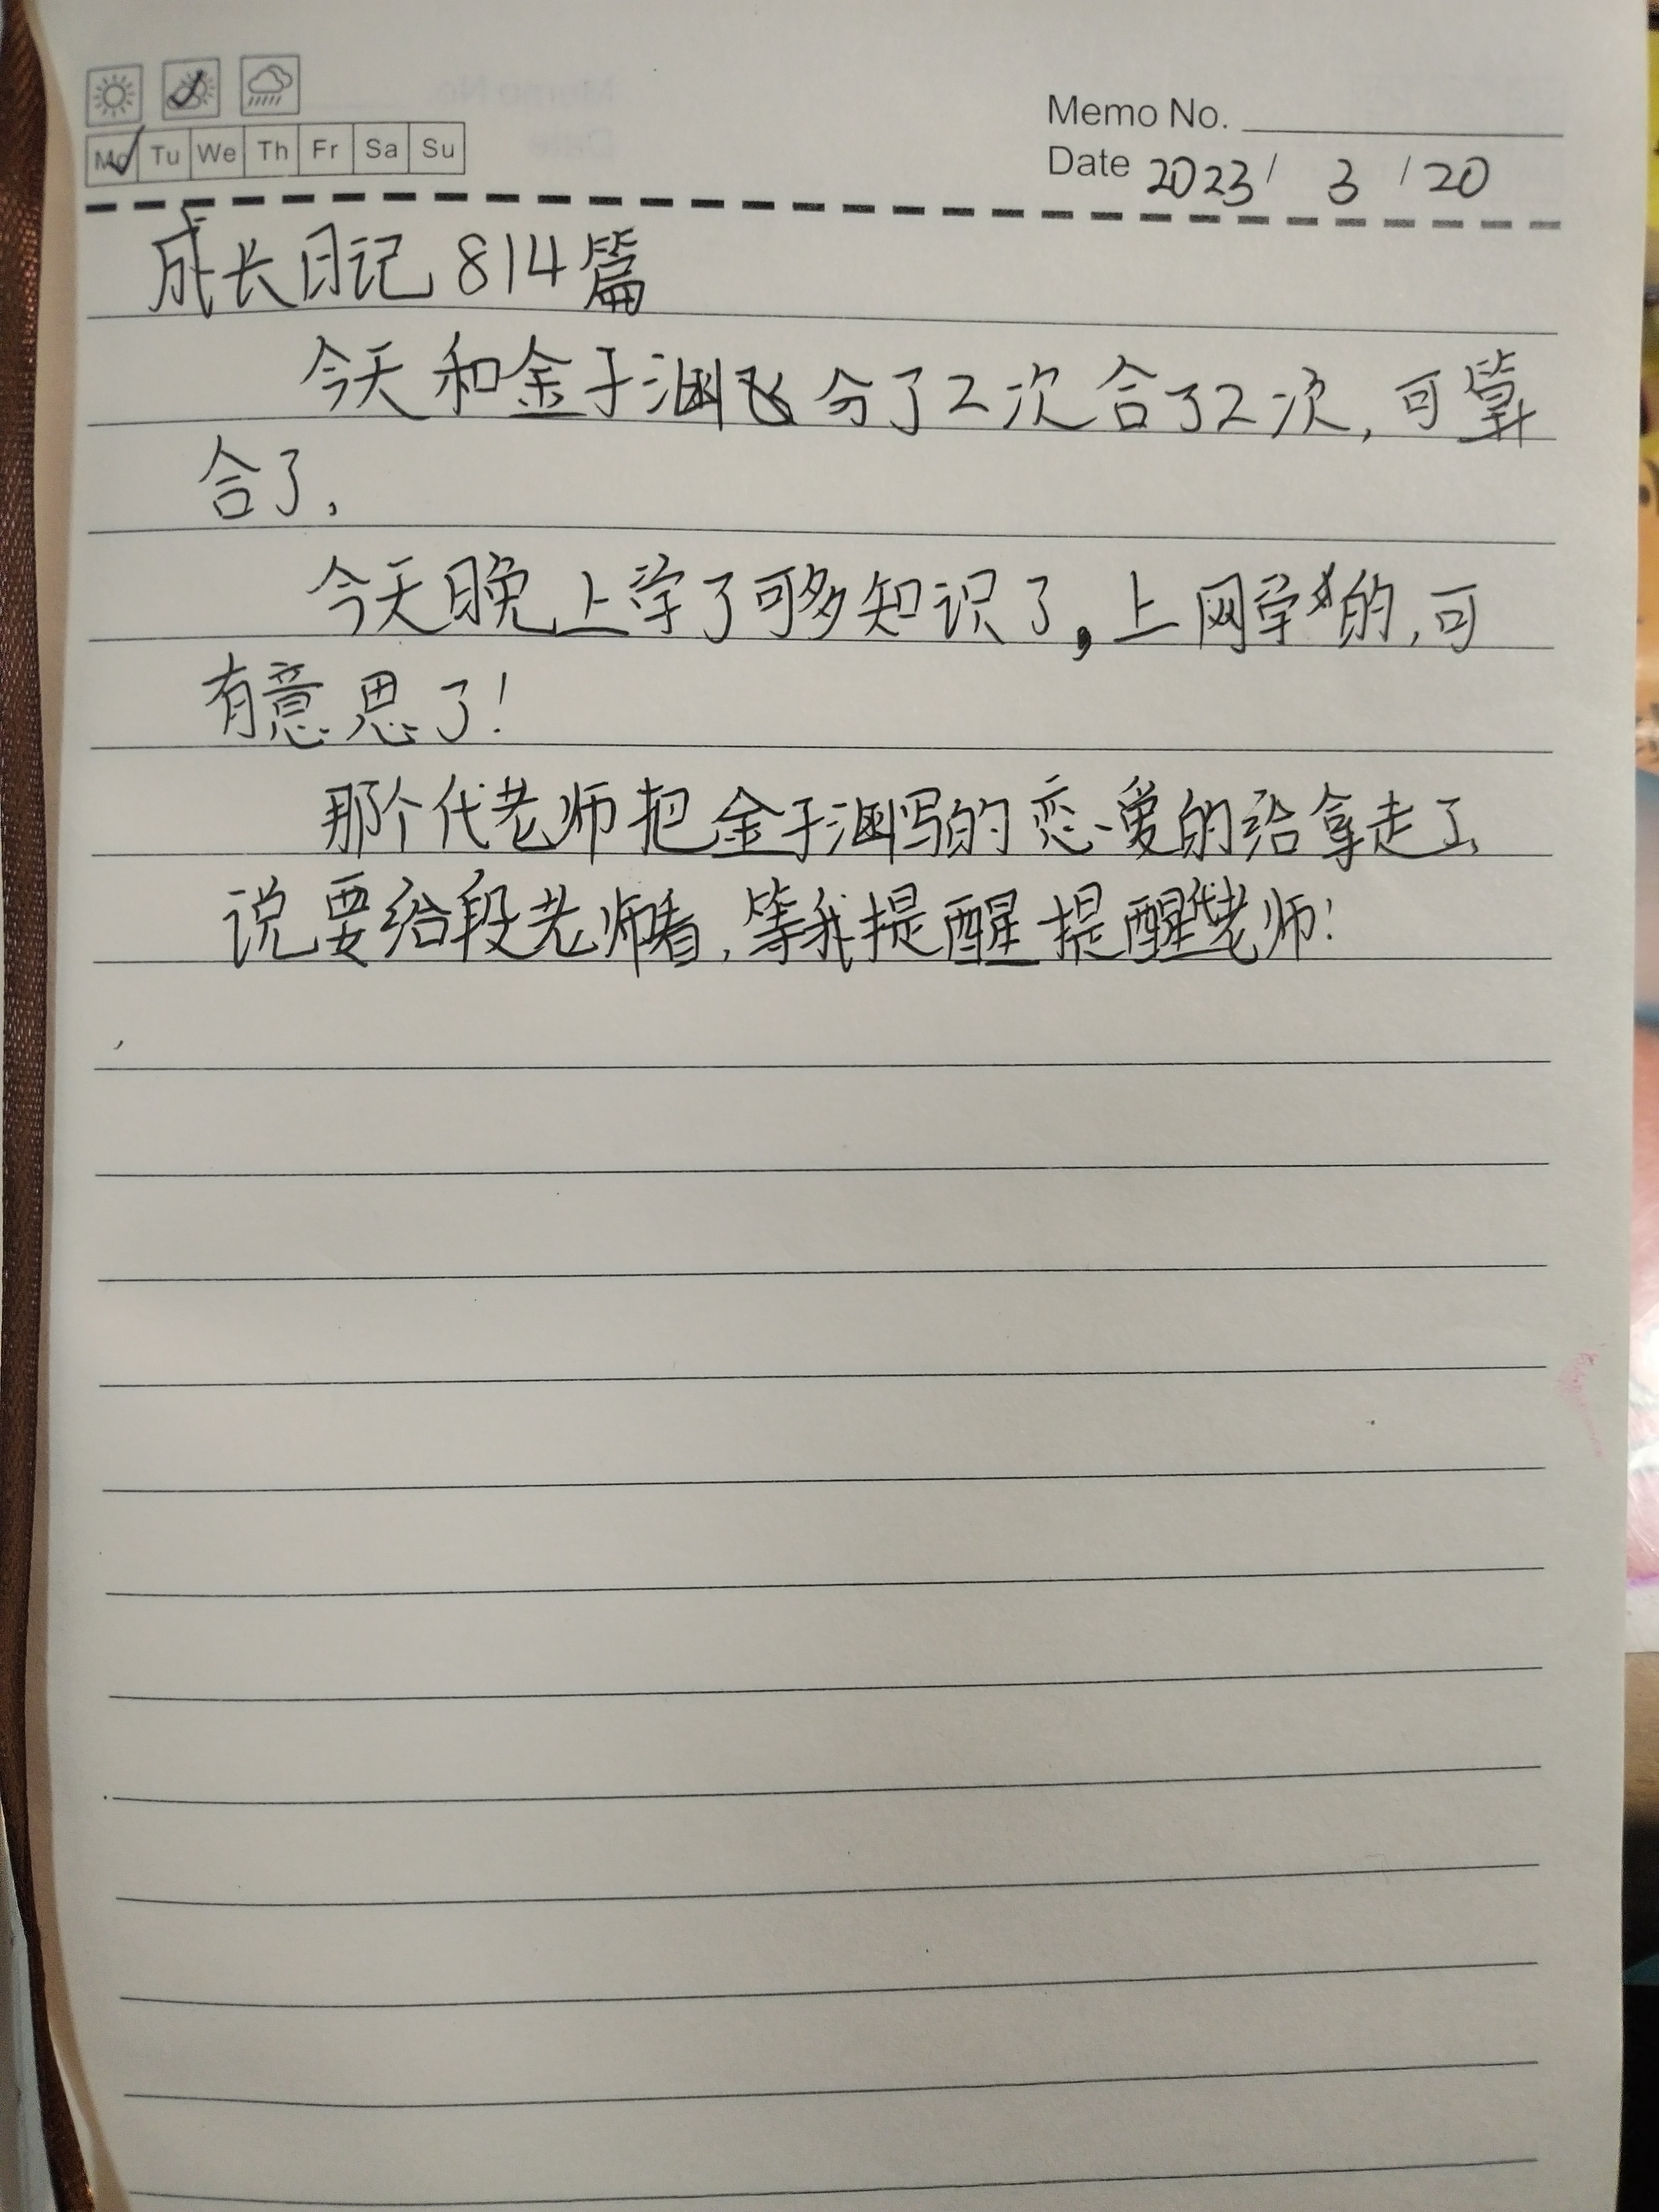 Memo No.
Mo Tu We Th Fr Sa Su
Date 2023 / 3 / 20
成长日记 814篇
今天和金于涵分了2次合了2次,可算
合了,
今天晚上学了可多知识了,上网学的,可
有意思了!
那个代老师把金于涵写的恋爱的给拿走了,
说要给段老师看,等我提醒提醒代老师!